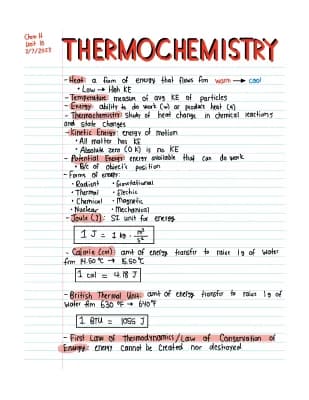 Chem H
Unit 10
3/7/2023
THERMOCHEMISTRY
- Heat: a form of energy that flows from warm → cool
• Low → High KE
- Temperature: measure of avg KE of particles
- Energy: ability to do work (w) or produce heat (q)
- Thermochemistry: study of heat change in chemical reactions
and state changes
- Kinetic Energy: energy of motion
• All matter has KE
• Absolute zero (0 K) is no KE
- Potential Energy: energy available that can do work
• B/c of object's position
- Forms of energy:
• Radiant • Gravitational
• Thermal • Electric
• Chemical • Magnetic
• Nuclear • Mechanical
- Joule (J): SI unit for energy
1 J = 1 kg · m²/s²
- Calorie (cal): amt of energy transfer to raise 1g of water
from 14.50 °C → 15.50 °C
1 cal = 4.18 J
- British Thermal Unit: amt of energy transfer to raise 1g of
water from 63.0 °F → 64.0 °F
1 BTU = 1055 J
- First Law of Thermodynamics/Law of Conservation of
Energy: energy cannot be created nor destroyed